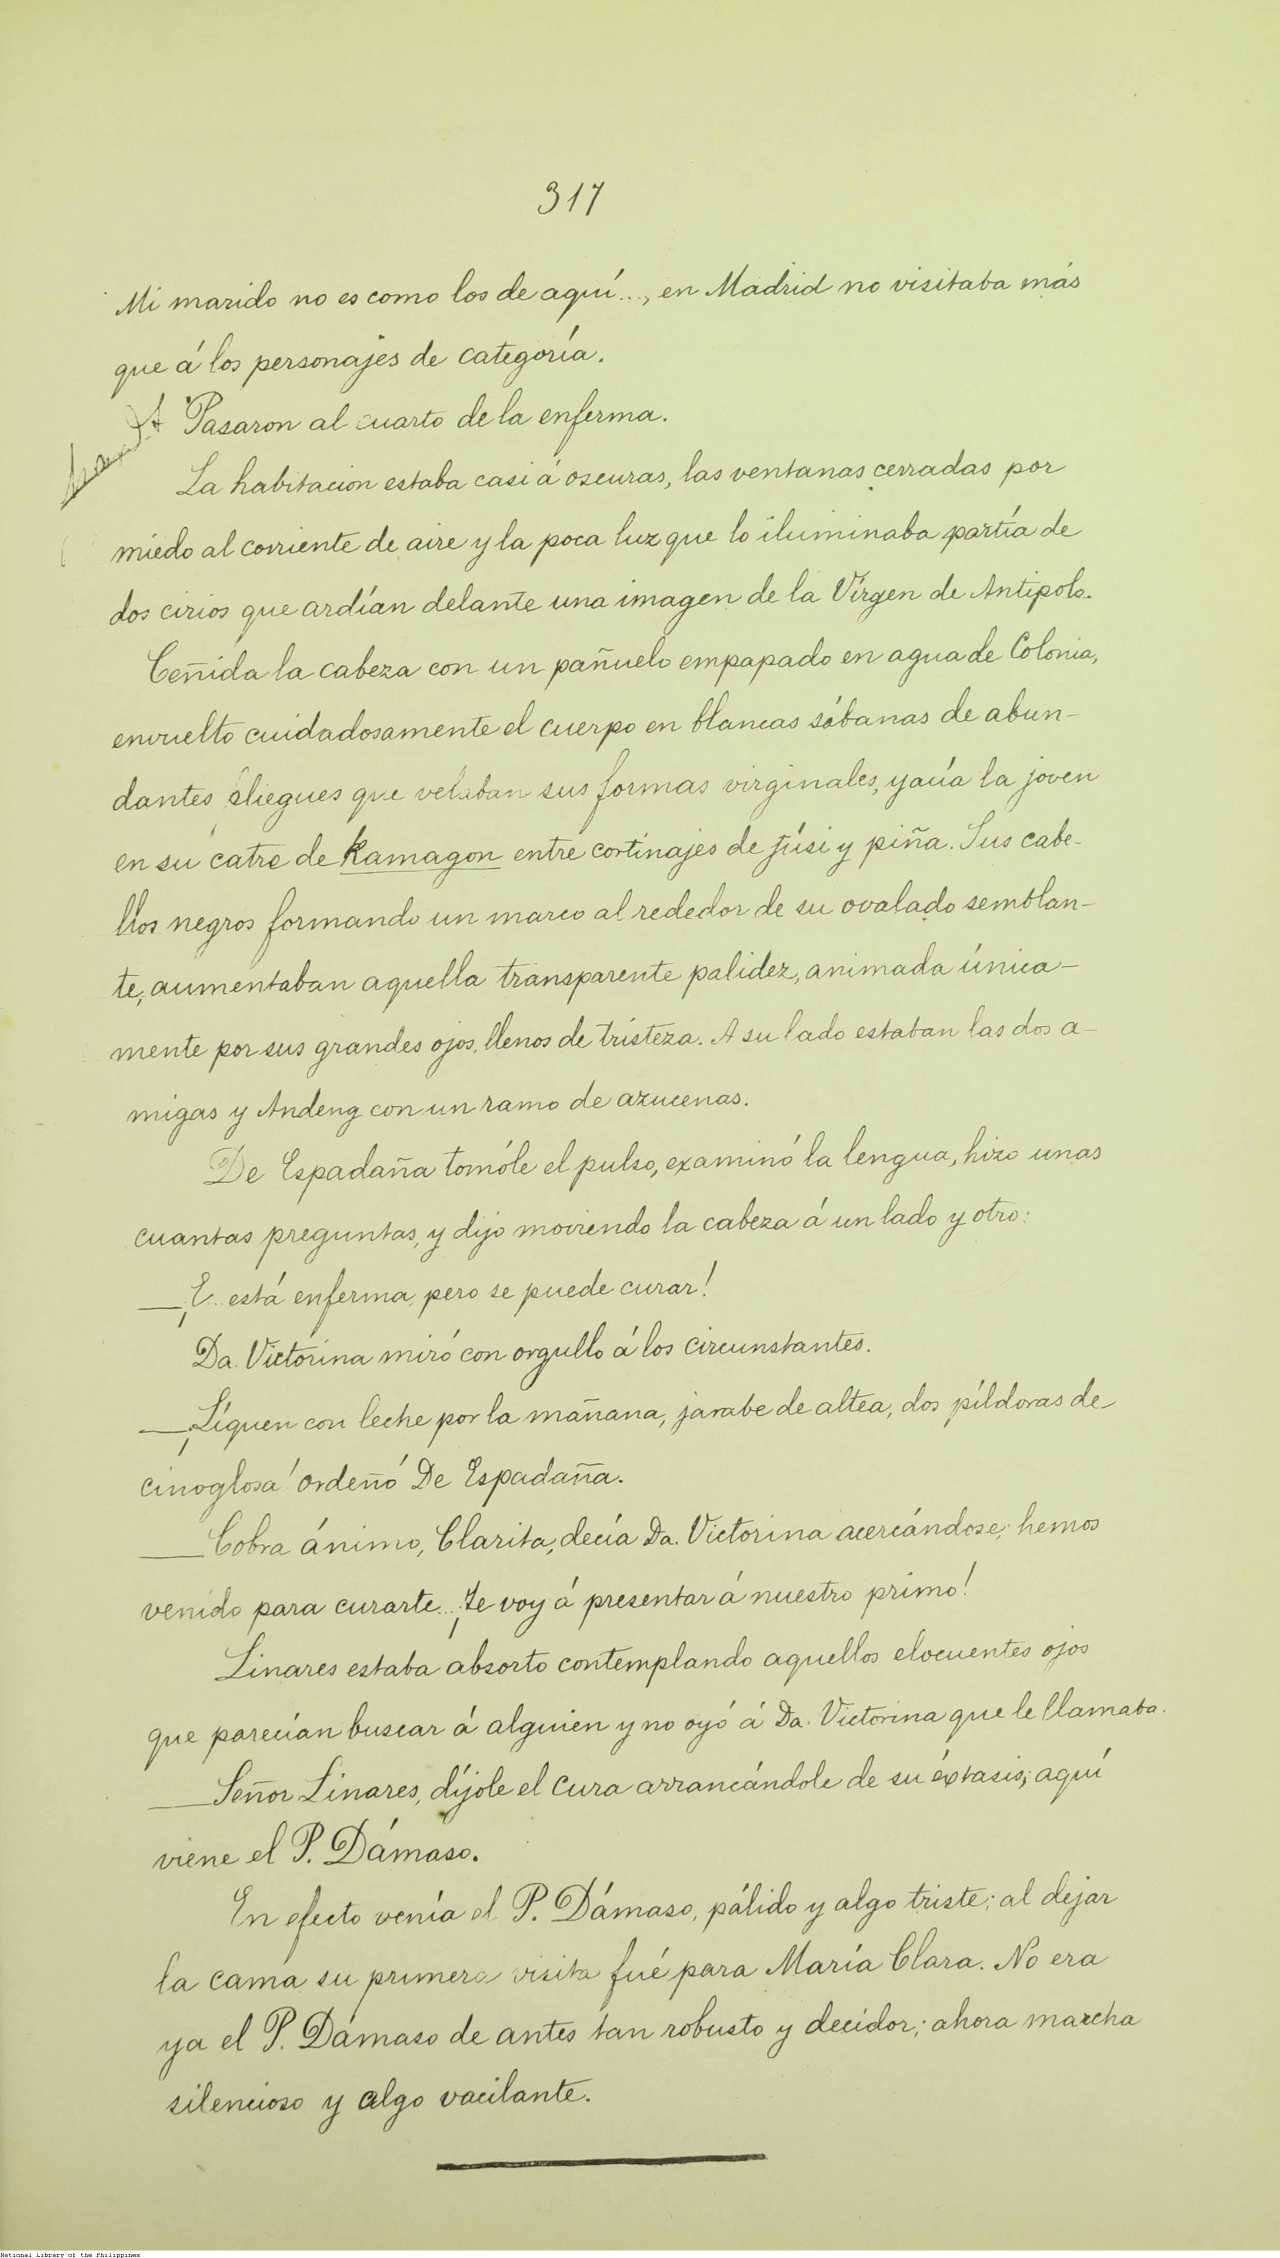 317
Mi marido no es como los de aquí..., en Madrid no visitaba más
que á los personajes de categoría.
Pasaron al cuarto de la enferma.
La habitacion estaba casi á oscuras, las ventanas cerradas por
miedo al corriente de aire y la poca luz que lo iluminaba partía de
dos cirios que ardían delante una imagen de la Vírgen de Antipolo.
Ceñida la cabeza con un pañuelo empapado en agua de Colonia,
envuelto cuidadosamente el cuerpo en blancas sábanas de abun-
dantes pliegues que velaban sus formas virginales, yacía la joven
en su catre de Kamagon entre cortinajes de júsi y piña. Sus cabe-
llos negros formando un marco al rededor de su ovalado semblan-
te, aumentaban aquella transparente palidez, animada única-
mente por sus grandes ojos llenos de tristeza. A su lado estaban las dos a-
migas y Andeng con un ramo de azucenas.
De Espadaña tomóle el pulso, examinó la lengua, hizo unas
cuantas preguntas, y dijo moviendo la cabeza á un lado y otro:
—¡E.. está enferma, pero se puede curar!
Da. Victorina miró con orgullo á los circunstantes.
—¡Líquen con leche por la mañana, jarabe de altea, dos píldoras de
cinoglosa! ordeñó De Espadaña.
—Cobra ánimo, Clarita, decía Da. Victorina acercándose; hemos
venido para curarte... ¡Te voy á presentar á nuestro primo!
Linares estaba absorto contemplando aquellos elocuentes ojos
que parecían buscar á alguien y no oyó á Da. Victorina que le llamaba.
—Señor Linares, díjole el cura arrancándole de su éxtasis; aquí
viene el P. Dámaso.
En efecto venía el P. Dámaso, pálido y algo triste; al dejar
la cama su primera visita fué para María Clara. No era
ya el P. Dámaso de antes tan robusto y decidor; ahora marcha
silencioso y algo vacilante.
National Library of the Philippines